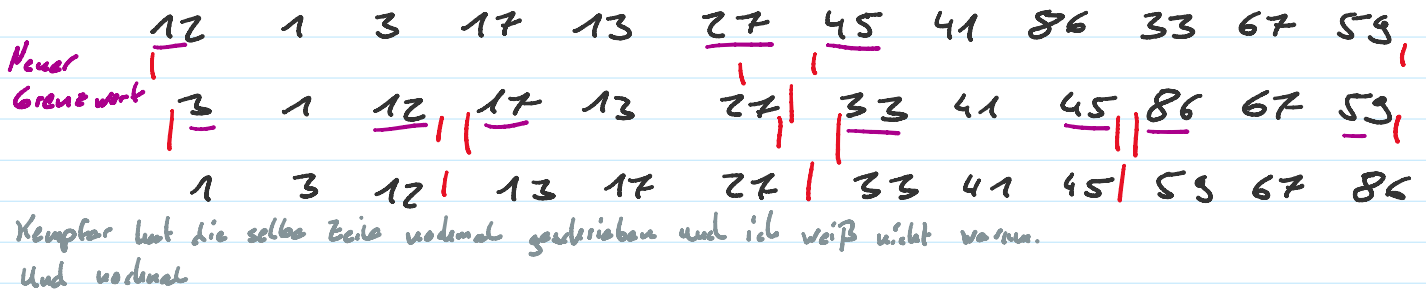 12 1 3 17 13 27 45 41 86 33 67 59
Neuer
Grenzwert
3 1 12 17 13 27 33 41 45 86 67 59
1 3 12 13 17 27 33 41 45 59 67 86
Kempfer hat die selbe Zeile nochmal geschrieben und ich weiß nicht warum.
Und nochmal